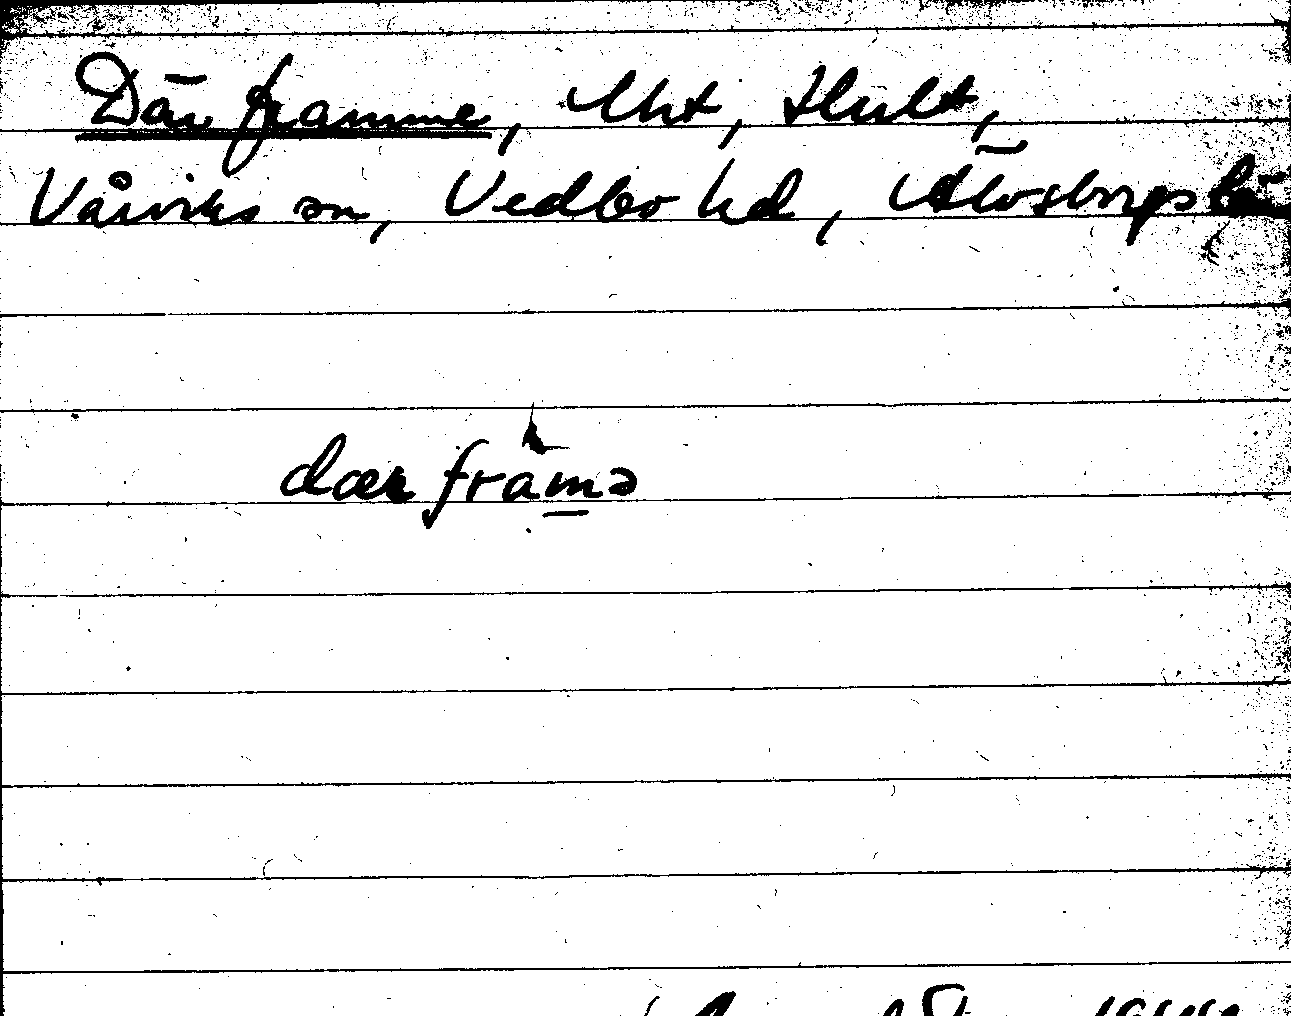 Där framme, Uht, Hult,
Vårviks sn, Vedbo hd, Älvsborgs län
dær framə